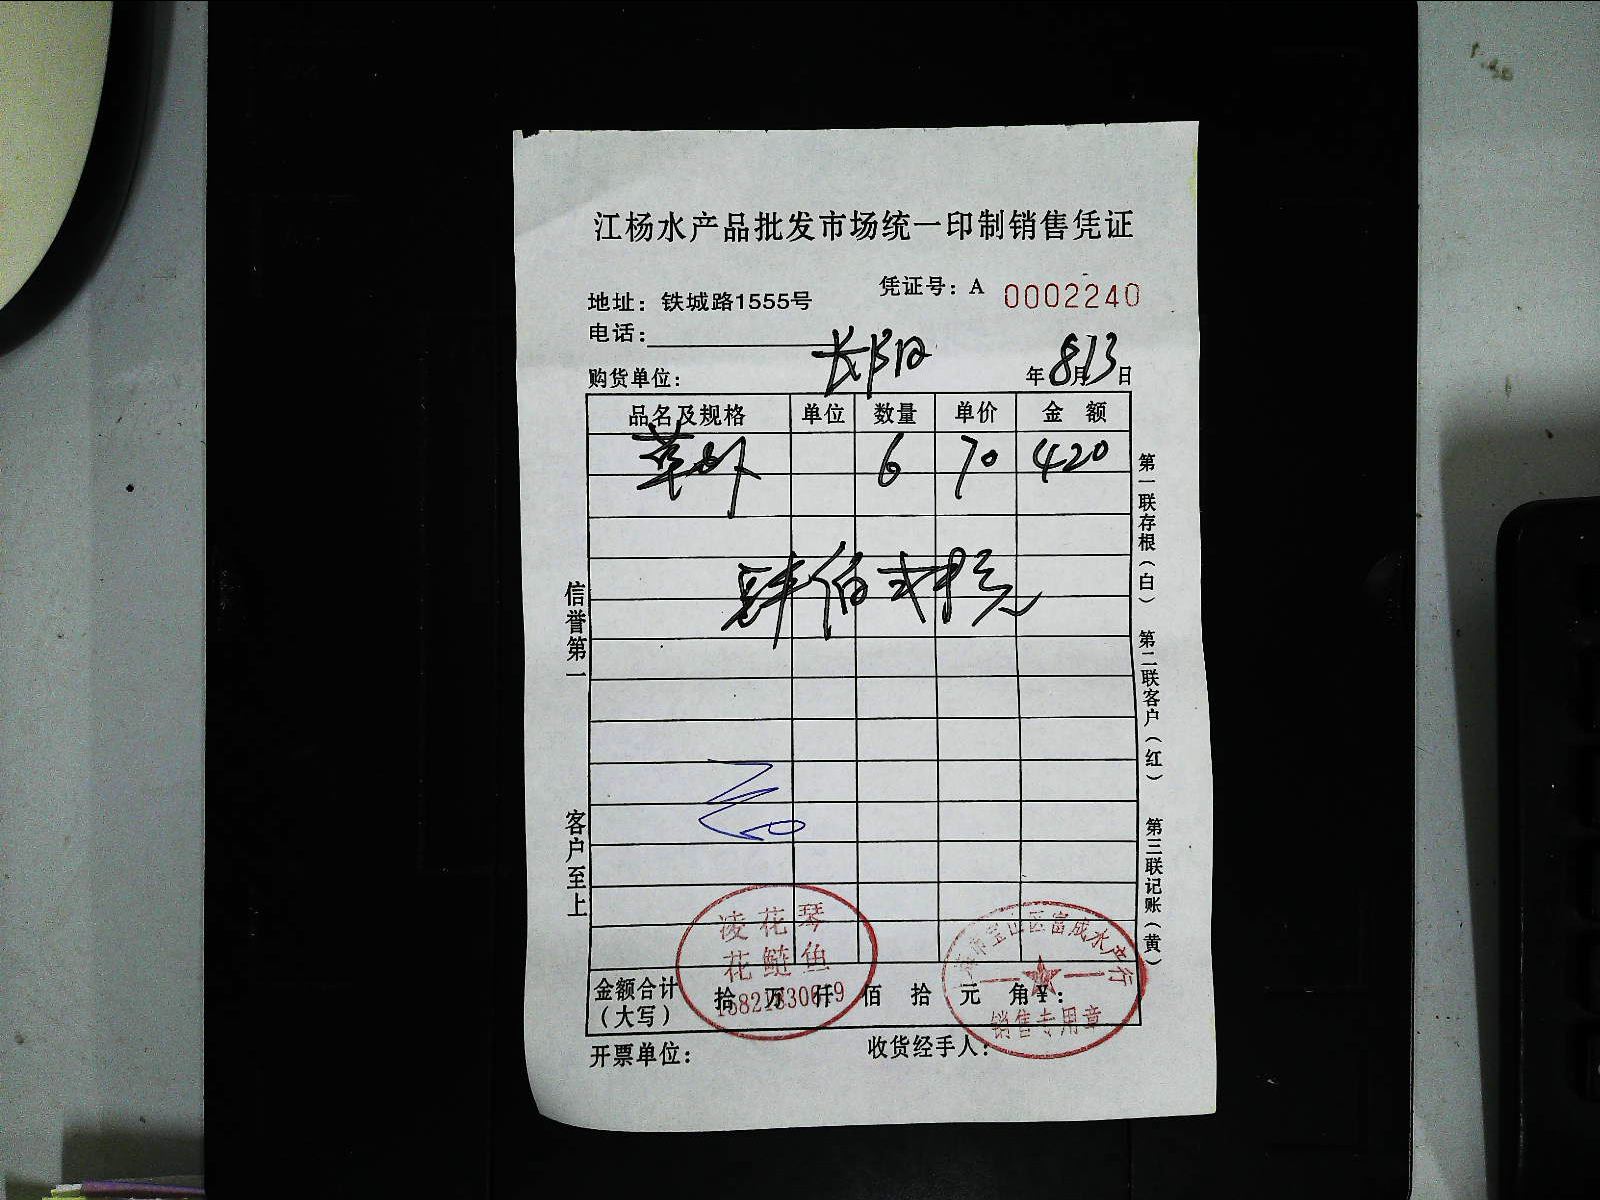 江杨水产品批发市场统一印制销售凭证
凭证号：A 0002240
地址：铁城路1555号
电话：
购货单位： 年8月13日
品名及规格 单位 数量 单价 金 额
6 70 420
肆佰贰拾元
信誉第一
客户至上
第一联存根（白）
第二联客户（红）
第三联记账（黄）
凌花琴
花鲢鱼
宝山区富成水产行
销售专用章
金额合计
（大写）
拾 万 仟 佰 拾 元 角 ¥：
开票单位： 收货经手人：